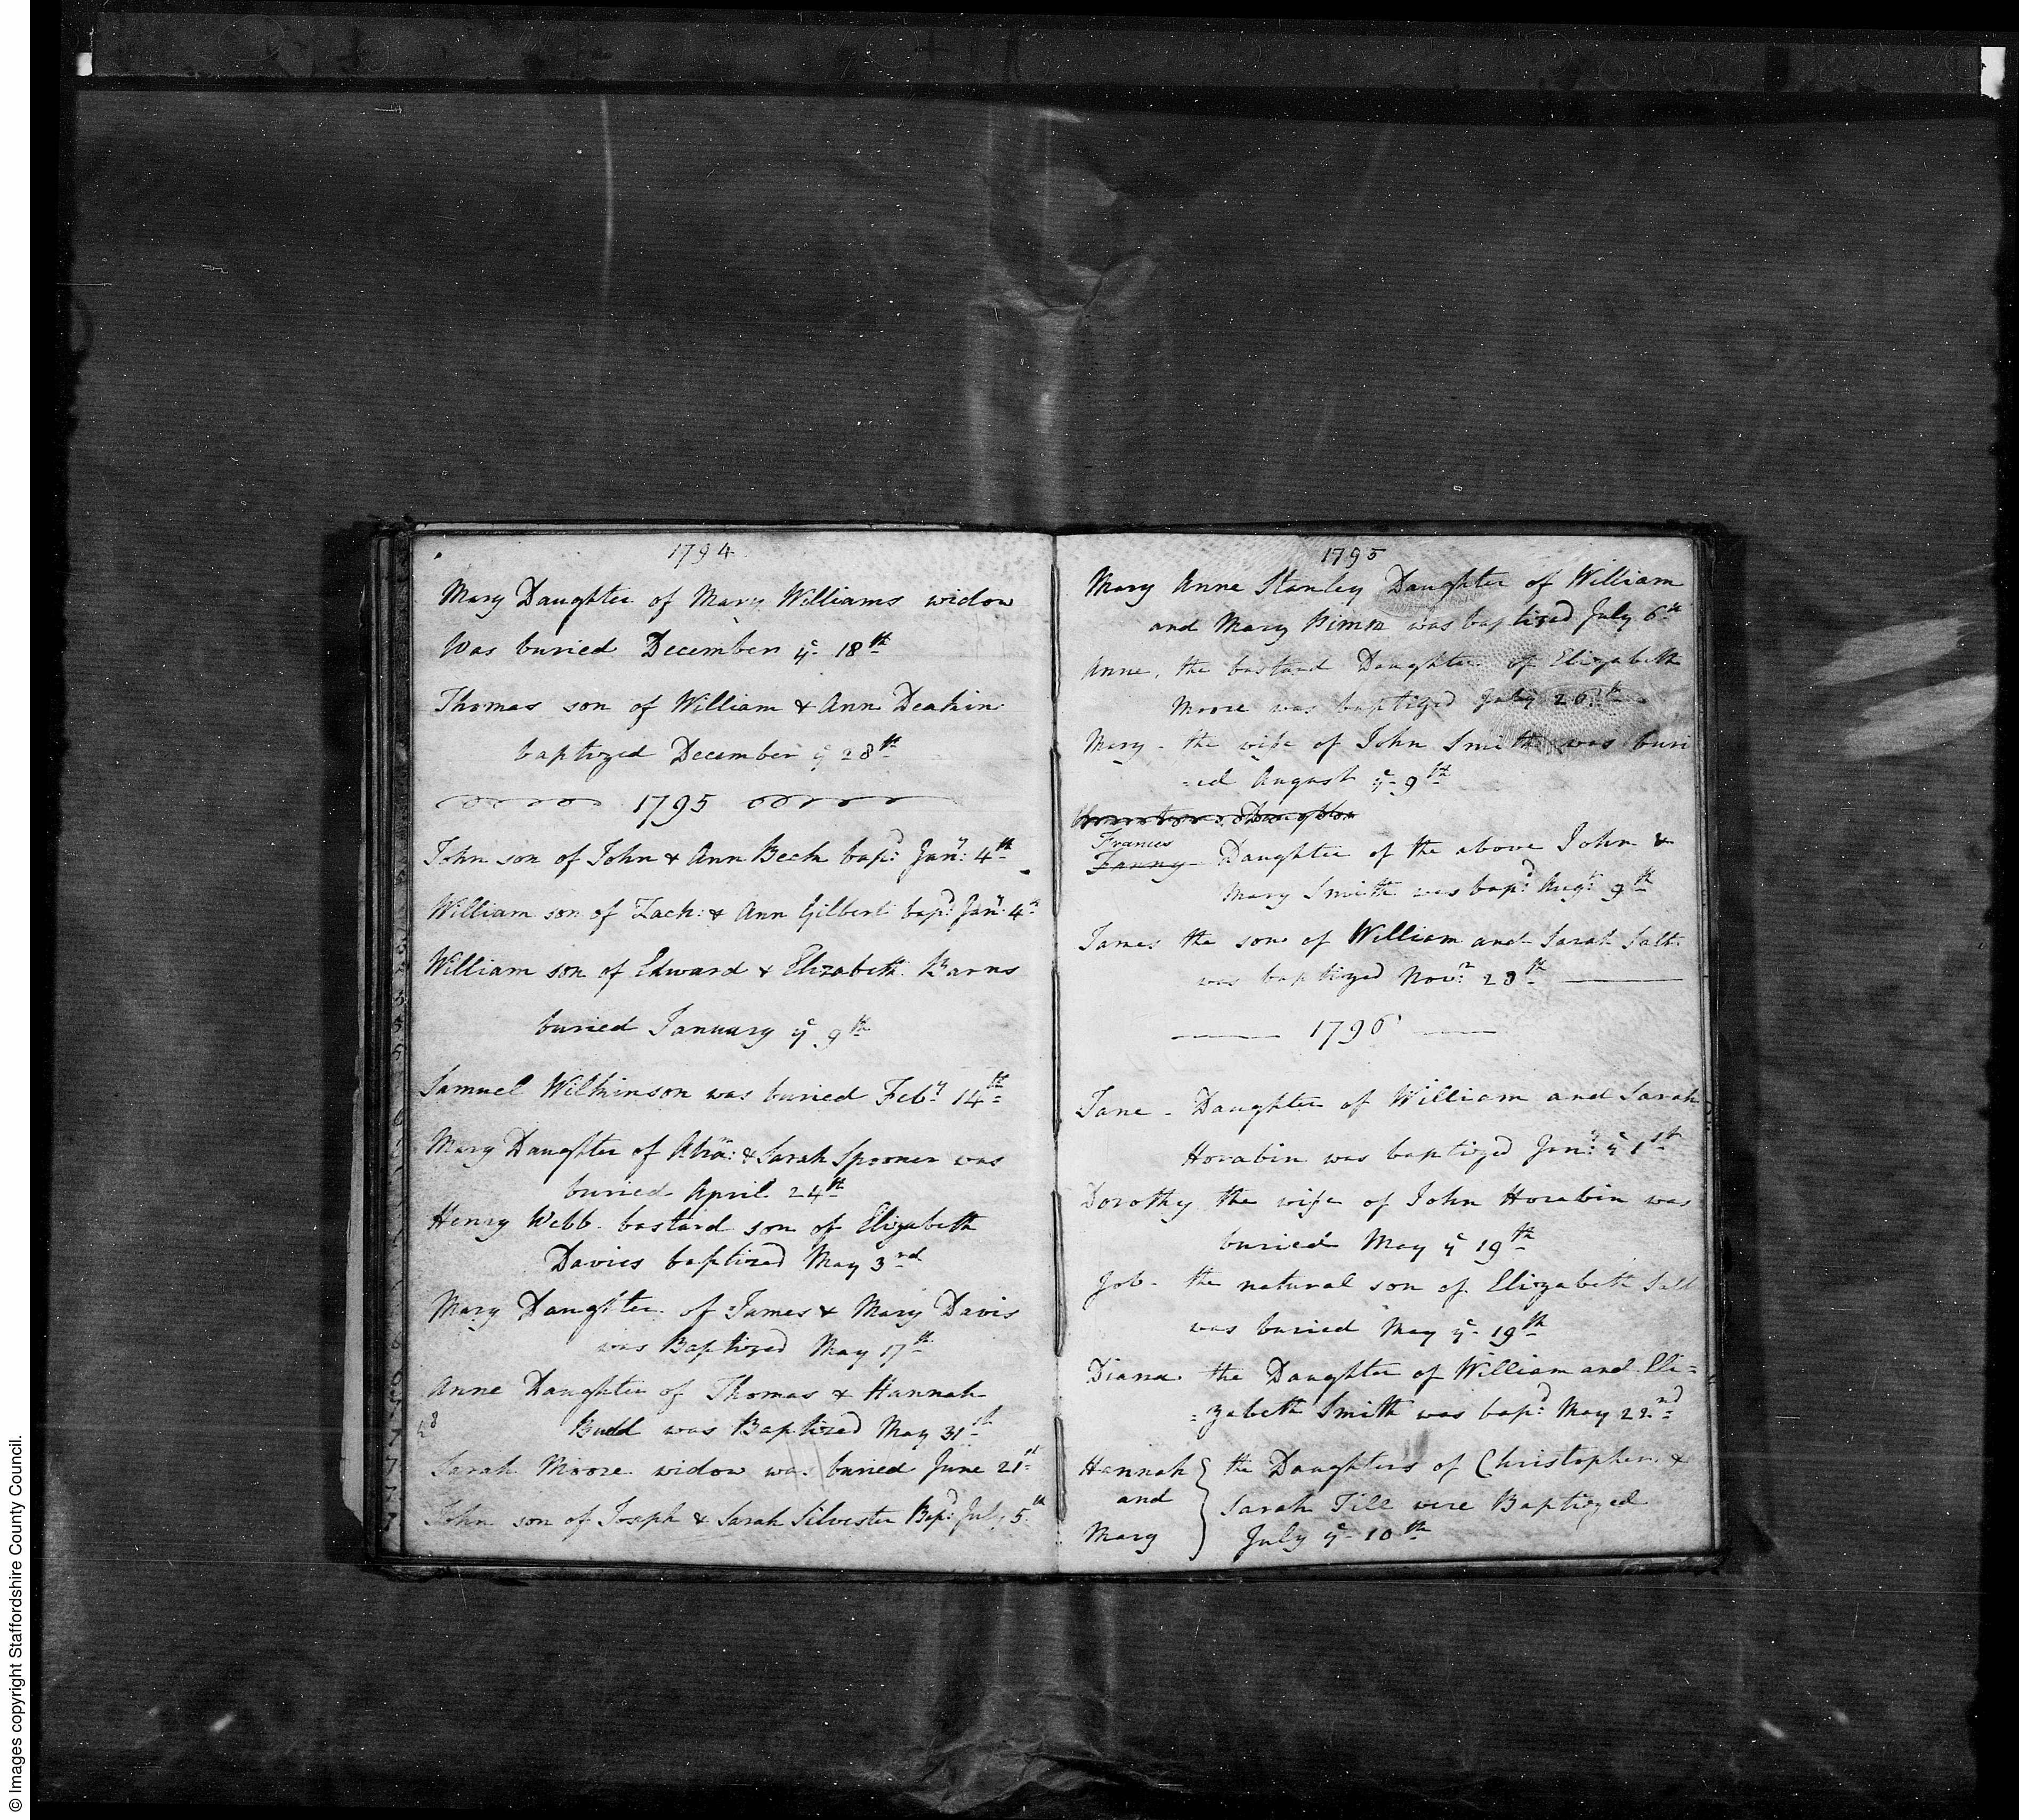 1794
Mary Daughter of Mary Williams widow
Was buried December ye 18th
Thomas son of William & Ann Deakin
baptized December ye 28th
1795
John son of John & Ann Beck bapd: Jany: 4th
William son of Zach: & Ann Gilbert bapd: Jany: 4th
William son of Edward & Elizabeth Barns
buried January ye 9th
Samuel Wilkinson was buried Feby 14th
Mary Daughter of Abrm: & Sarah Spooner was
buried April 24th
Henry Webb bastard son of Elizabeth
Davies baptized May 3rd
Mary Daughter of James & Mary Davis
was Baptized May 17th
Anne Daughter of Thomas & Hannah
Budd was Baptized May 31st
Sarah Moore widow was buried June 21st
John son of Joseph & Sarah Silvester Bapd: July 5th
1795
Mary Anne Stanley Daughter of William
and Mary was baptized July 6th
Anne, the bastard Daughter of Elizabeth
Moore was baptized July 26th
Mary - the wife of John Smith was buri
=ed August ye 9th
Frances
Fanny - Daughter of the above John &
Mary Smith was bapd: Augt: 9th
James the son of William and Sarah Salt
was baptized Novr: 23th
1796
Jane - Daughter of William and Sarah
Horabin was baptized Jany: ye 1st
Dorothy the wife of John Horabin was
buried May ye 19th
Job - the natural son of Elizabeth Salt
was buried May ye 19th
Diana the Daughter of William and Eli=
=zabeth Smith was bapd: May 22nd
Hannah } the Daughters of Christopher &
and } Sarah Till were Baptized
Mary } July ye 10th
© Images copyright Staffordshire County Council.